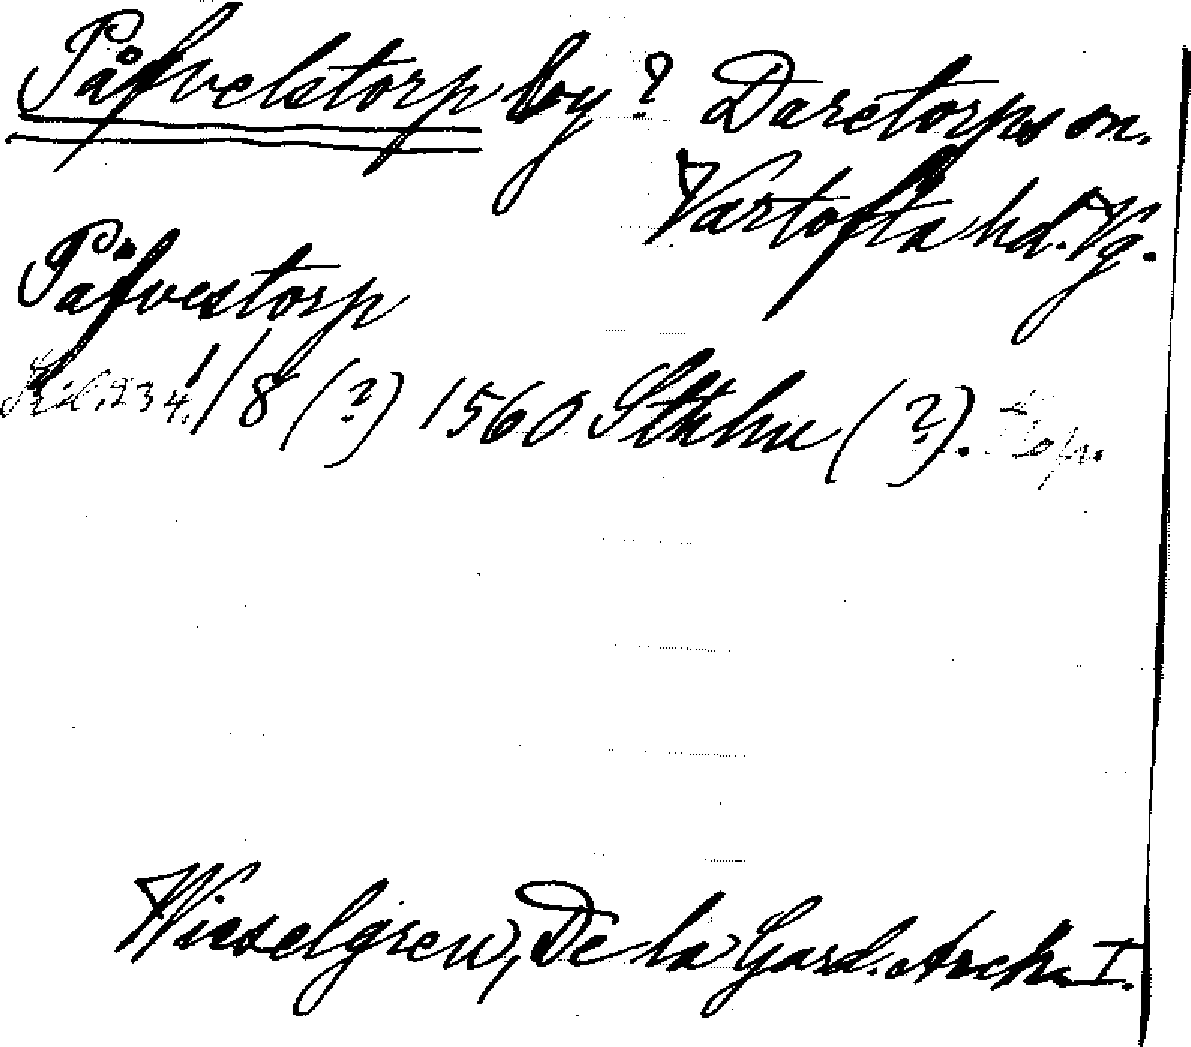 Påfvelstorp by? Daretorps sn.
Vartofta hd. Vg.
Påfvestorp
1/8 (?) 1560 Sthlm (?). Kop.
Wieselgren, De la Gard. Arch. I.